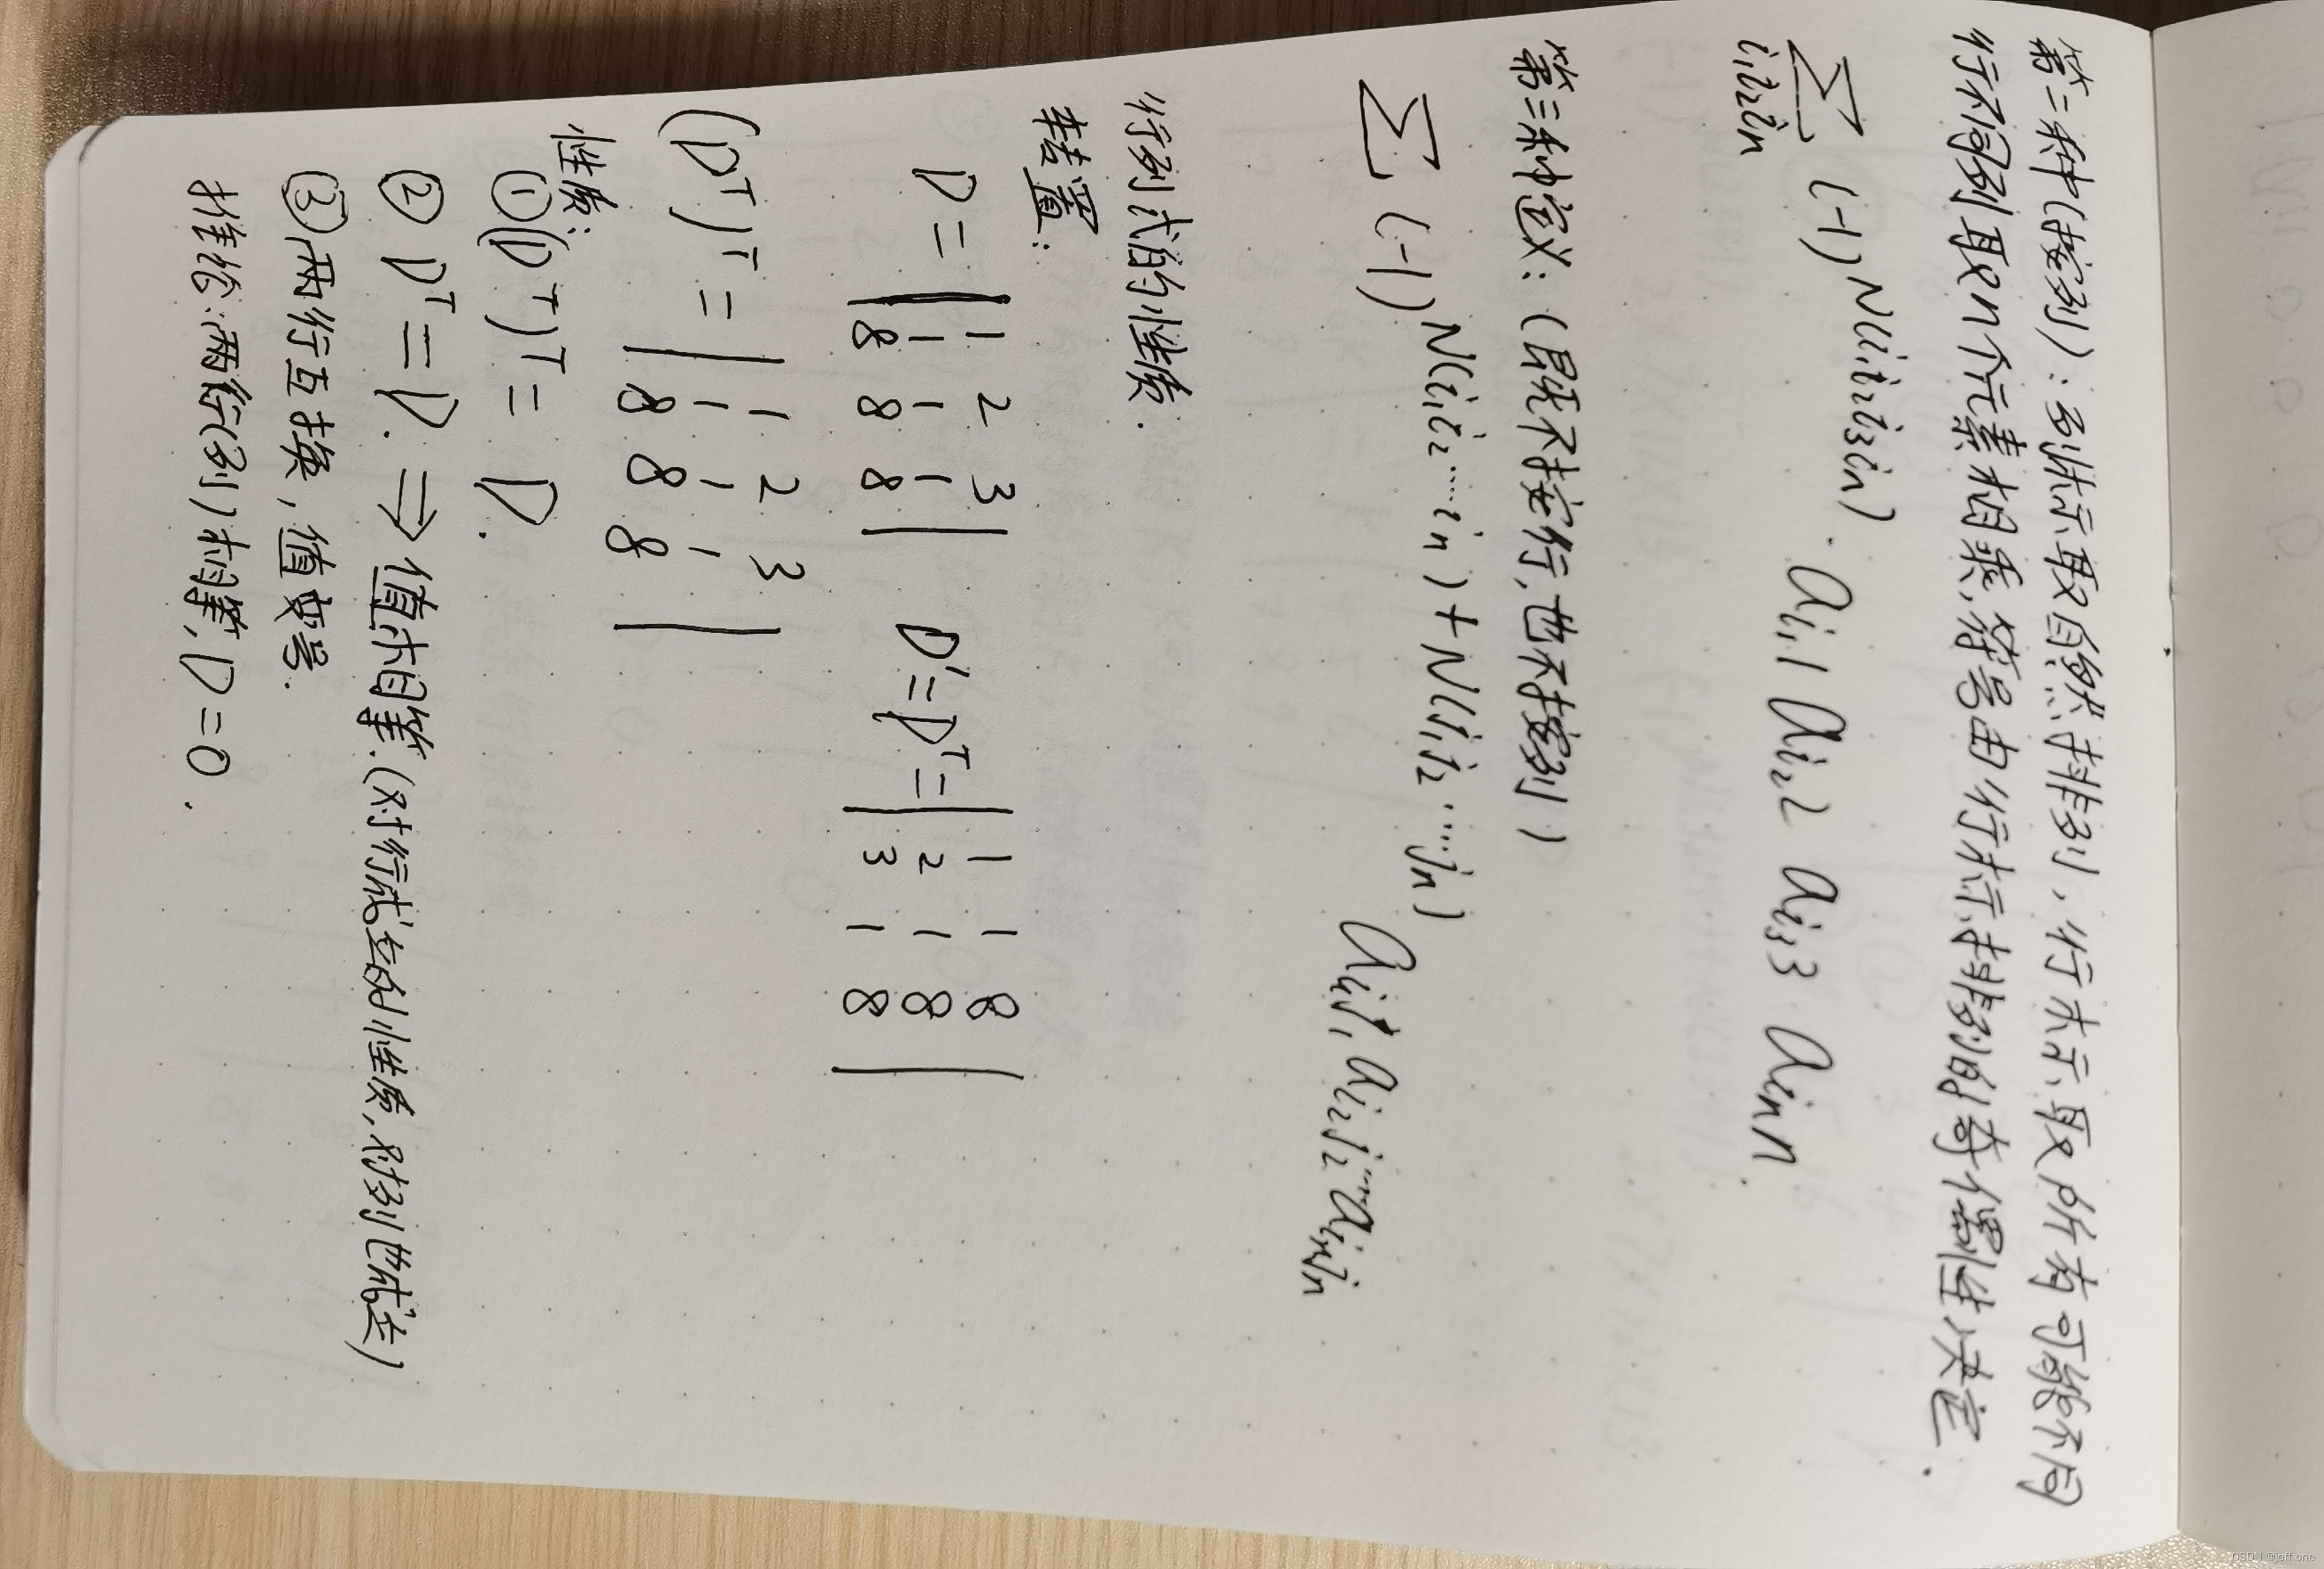 第二种(按列):列标取自然排列,行标取所有可能不同
行不同列取n个元素相乘,符号由行标排列的奇偶性决定.
∑ (-1)^N(i₁i₂i₃in) · ai₁1 ai₂2 ai₃3 ainn.
i₁i₂in
第三种定义:(既不按行,也不按列)
∑ (-1)^N(i₁i₂……in)+N(j₁j₂……jn) ai₁j₁ ai₂j₂…ainjn
行列式的性质.
转置:
D = | 1 2 3 | D'=Dᵀ= | 1 1 8 |
| 1 1 1 | | 2 1 8 |
| 8 8 8 | | 3 1 8 |
(Dᵀ)ᵀ = | 1 2 3 |
| 1 1 1 |
| 8 8 8 |
性质:
①(Dᵀ)ᵀ = D.
② Dᵀ=D. ⇒ 值相等.(对行成立的性质,对列也成立)
③两行互换,值变号.
推论:两行(列)相等,D=0.
CSDN @jeff one